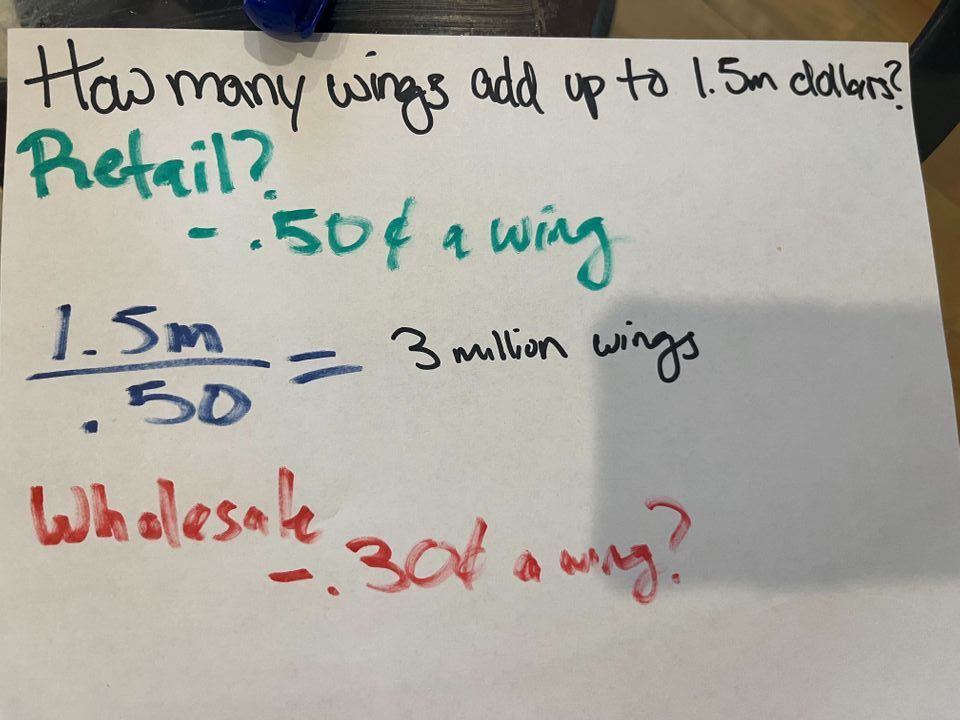 How many wings add up to 1.5m dollars?
Retail?
- .50¢ a wing
1.5m
.50
= 3 million wings
Wholesale
- .30¢ a wing?